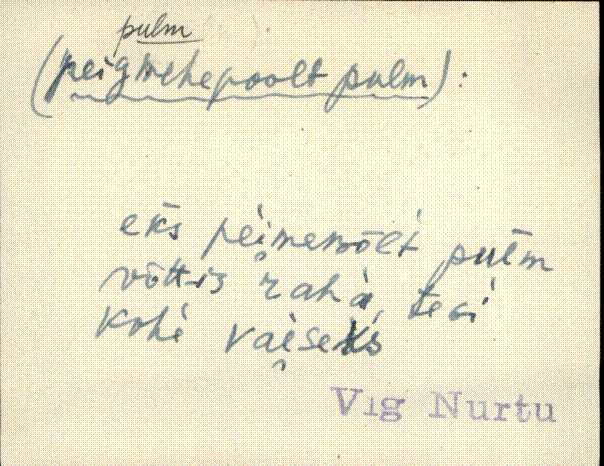 pulm
(peigmehepoolt pulm):
eks pei̯mepoolt pulm
võttis raha, tegi
kohe vae̯seks
Vig Nurtu